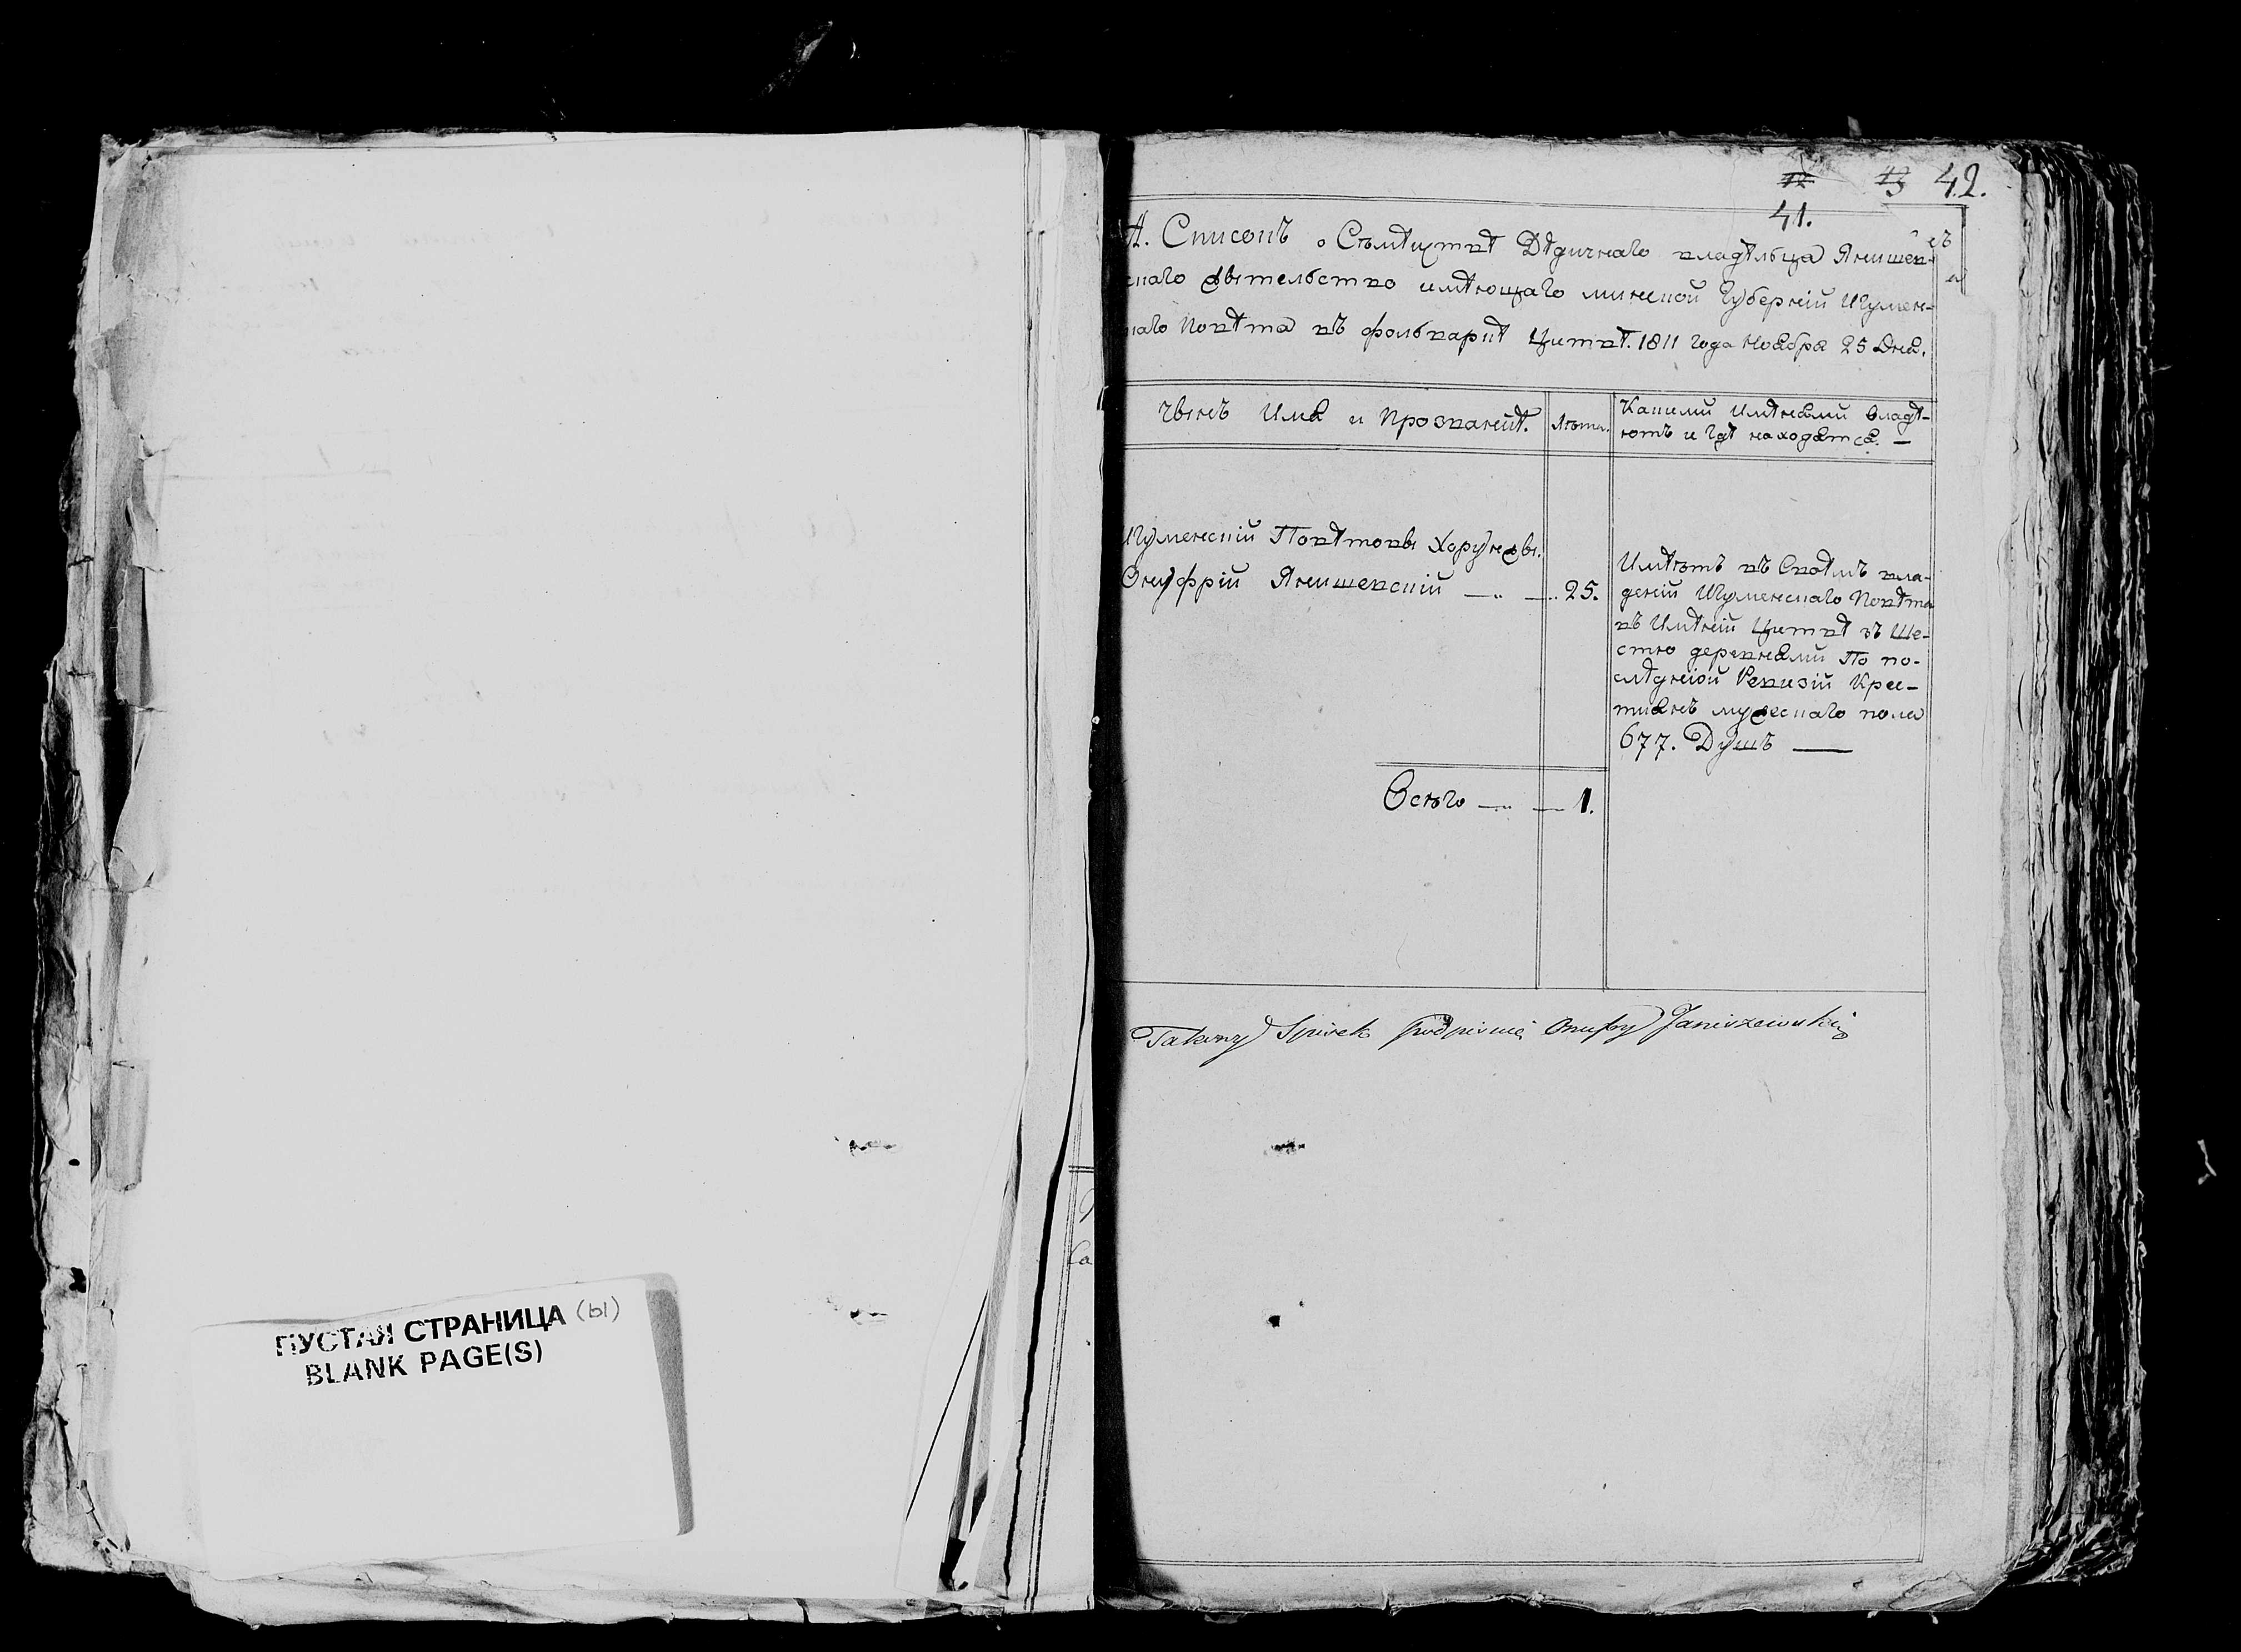 42.
41.
А. Списокъ о Съмѣцтвѣ Дѣдичнаго владѣльца Янишев-
скаго жытельство имѣющаго минской Губерніи Игумен-
наго Повѣта въ фольваркѣ Цитвѣ. 1811 года Ноября 25 Дня.
Чынъ Имя и Прозваніѣ.
Лѣты.
Какими Имѣнями Владѣ-
ютъ и Гдѣ находятся. —
Игуменскій Повѣтовы Хорунжы.
Онуфрій Янишевскій — 25.
Имѣетъ въ Своѣмъ вла-
деніи Игуменскаго Повѣта
въ Имѣніи Цитвѣ зъ Ше-
стю деревнями По по-
слѣднюй Ревизіи Крес-
тиянъ мужескаго пола
677. Душъ —
Всѣго — 1.
Takowy Spisek podpisuię Onufry Janiszewski
ПУСТАЯ СТРАНИЦА (ы)
BLANK PAGE(S)